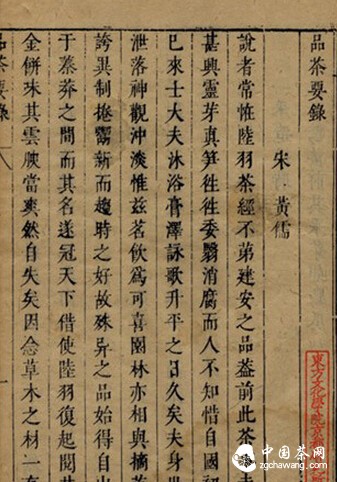 品茶要錄
宋·黃儒
說者常恠陸羽茶經不第建安之品葢前此茶
甚興靈芽真笋徃徃委翳消腐而人不知惜自國
巳來士大夫沐浴膏澤詠歌升平之日久矣夫身
泄落神觀冲淡惟茲茗飲爲可喜園林亦相與摘
誇異制捲鬻新而趨時之好故殊異之品始得自出
于蓁莽之間而其名遂冠天下借使陸羽復起閱其
金餅味其雲腴當爽然自失矣因念草木之材一有
品茶要錄
東方文化學院京
中国茶网
zgchawang.com